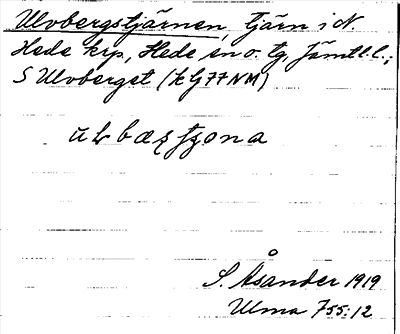 Ulvbergstjärnen, tjärn i N.
Hede krp., Hede sn o. tg, Jämtl. l.;
S Ulvberget (k G77NM)
S. Åsander 1919
Ulma 755:12